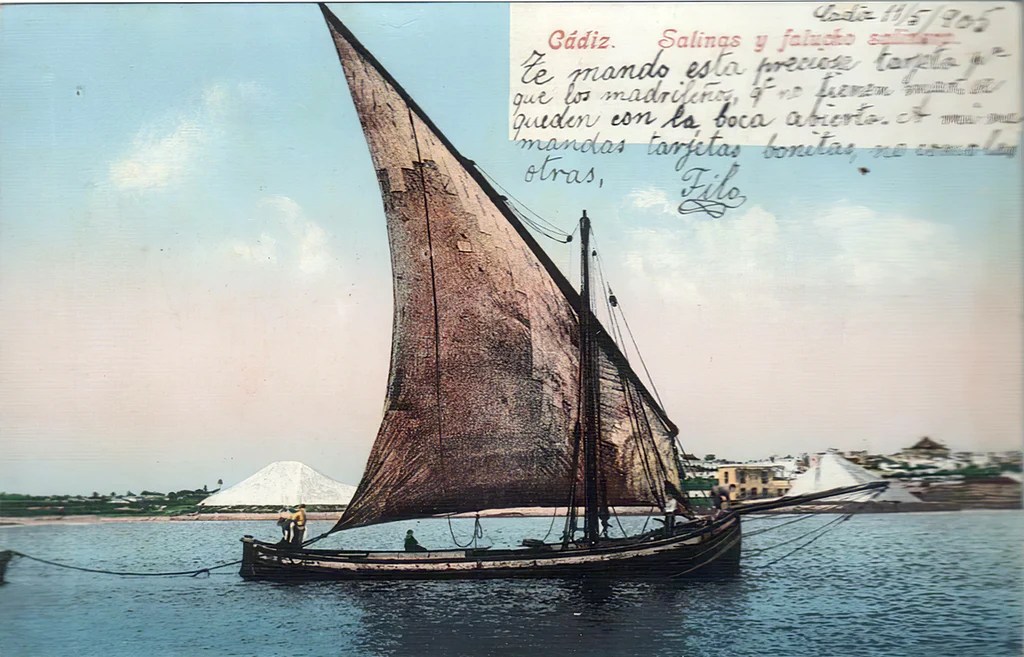 Cádiz 11/5/905
Cádiz. Salinas y falucho salinero.
Te mando esta preciose tarjeta pa
que los madrileños, q no tienen
queden con la boca abierta. A
mandas tarjetas bonitas, no como las
otras,
Filo